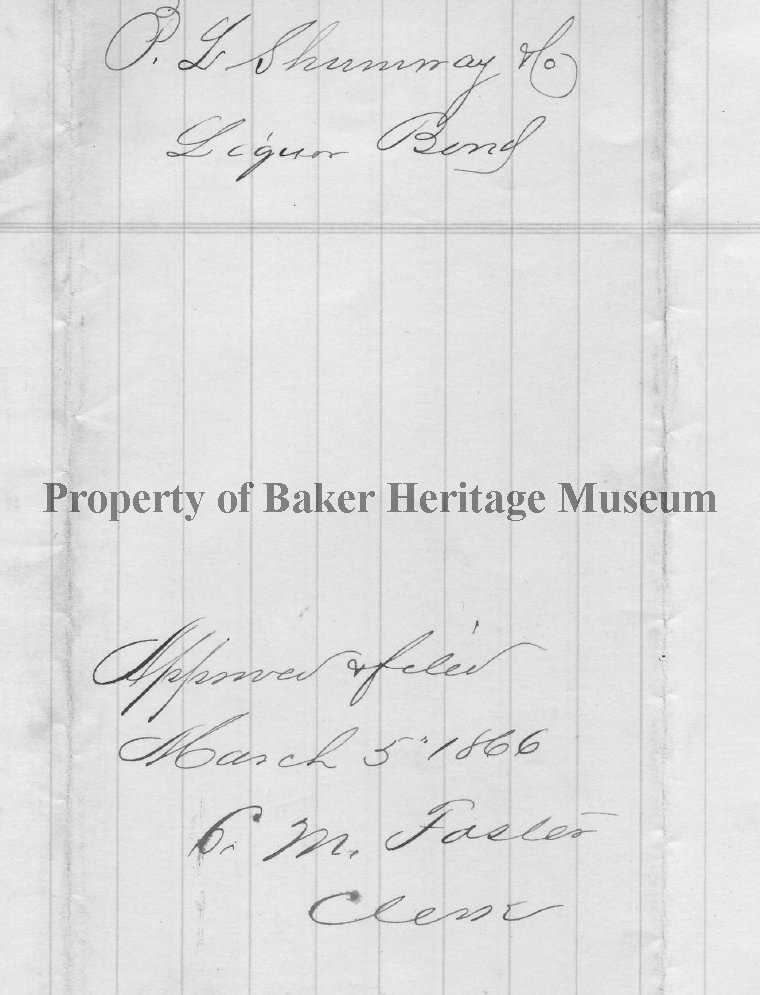 P. L Shumway & Co
Liquor Bond
Property of Baker Heritage Museum
Approved & filed
March 5" 1866
C. M. Foster
Clerk